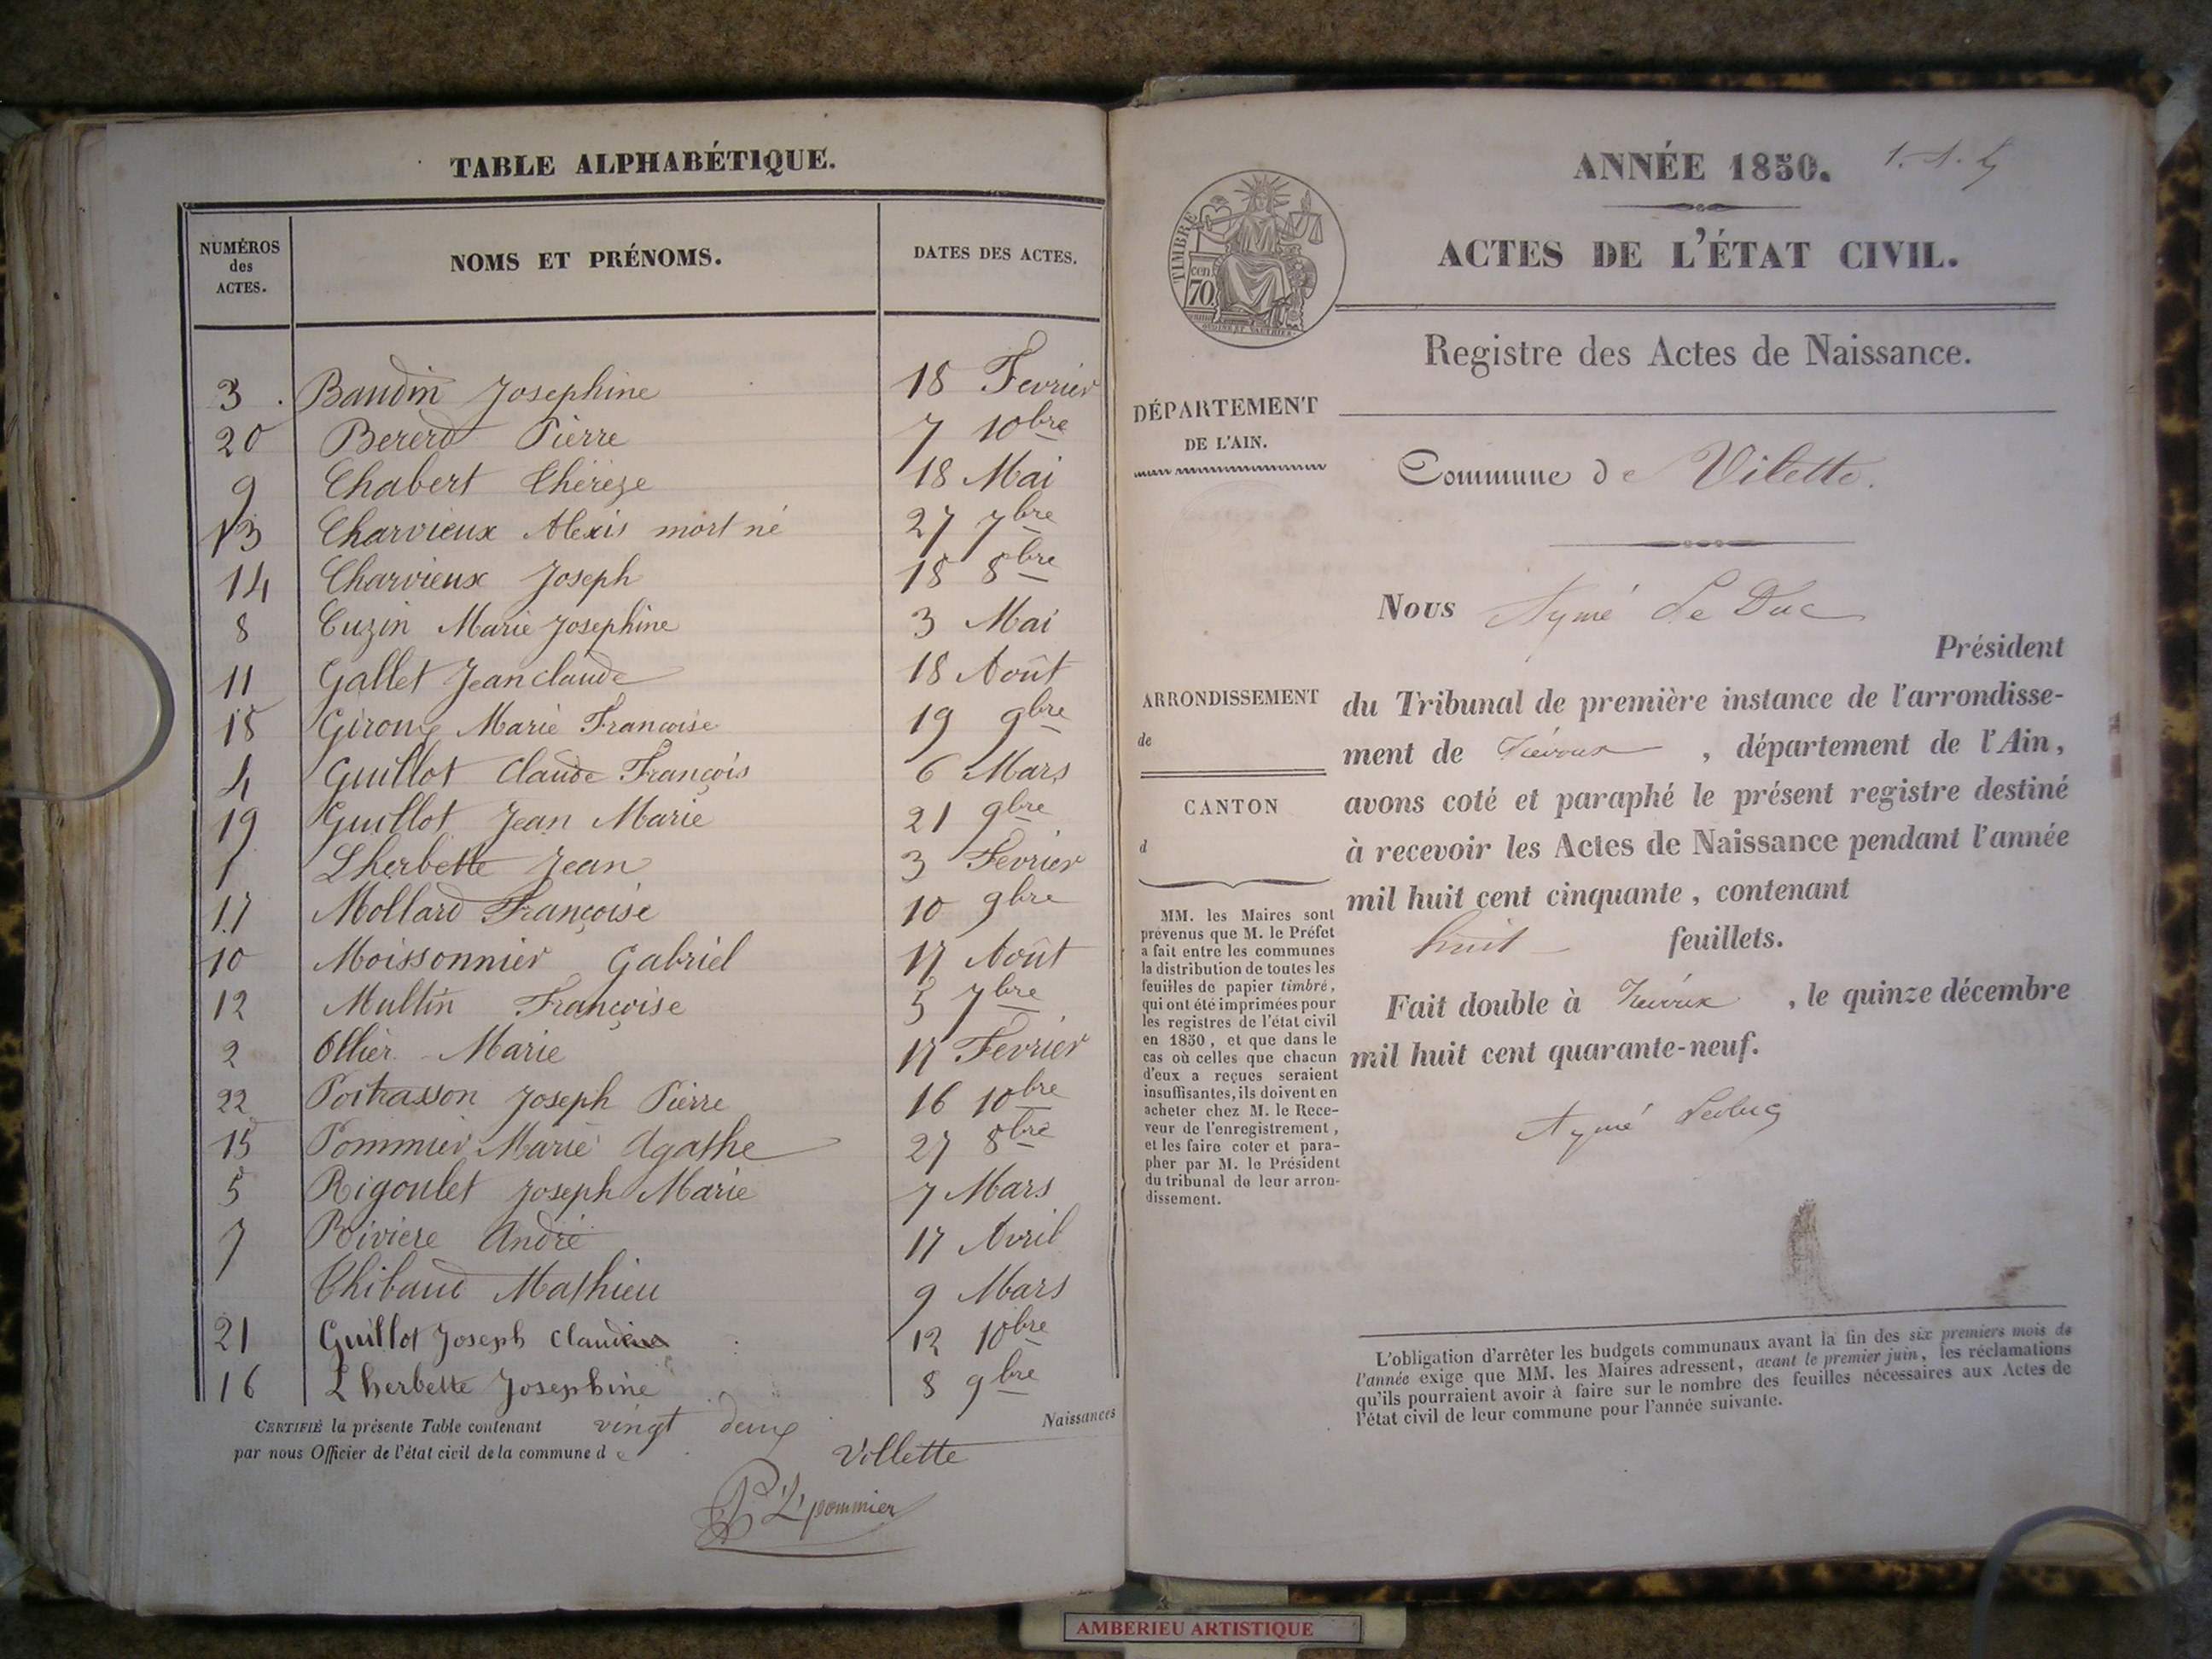 TABLE ALPHABÉTIQUE.
NUMÉROS
des
ACTES.
NOMS ET PRÉNOMS.
DATES DES ACTES.
3 Baudin Josephine 18 Fevrier
20 Bererd Pierre 7 10bre
9 Chabert Thérèze 18 Mai
13 Charvieux Alexis mort né 27 7bre
14 Charvieux Joseph 18 8bre
8 Cuzin Marie Josephine 3 Mai
11 Gallet Jean claude 18 Août
18 Giroux Marie Francoise 19 9bre
4 Guillot Claude François 6 Mars
19 Guillot Jean Marie 21 9bre
1 Lherbette Jean 3 Fevrier
17 Mollard Françoise 10 9bre
10 Moissonnier Gabriel 17 Août
12 Mullin Françoise 5 7bre
2 Ollier Marie 17 Fevrier
22 Poitrasson Joseph Pierre 16 10bre
15 Pommier Marie Agathe 27 8bre
5 Rigoulet Joseph Marie 7 Mars
7 Riviere André 17 Avril
Thibaud Mathieu 9 Mars
21 Guillot Joseph 12 10bre
16 Lherbette Josephine 8 9bre
CERTIFIÉ la présente Table contenant vingt deux Naissances
par nous Officier de l'état civil de la commune de Villette
pommier
1.
ANNÉE 1850.
TIMBRE
cen
70
ACTES DE L'ÉTAT CIVIL.
Registre des Actes de Naissance.
DÉPARTEMENT
DE L'AIN.
Commune de Vilette.
Nous Aymé Le Duc
Président
ARRONDISSEMENT
de
CANTON
d
du Tribunal de première instance de l'arrondisse-
ment de Trévoux, département de l'Ain,
avons coté et paraphé le présent registre destiné
à recevoir les Actes de Naissance pendant l'année
mil huit cent cinquante, contenant
huit feuillets.
Fait double à Trévoux, le quinze décembre
mil huit cent quarante-neuf.
Aymé Leduc
MM. les Maires sont
prévenus que M. le Préfet
a fait entre les communes
la distribution de toutes les
feuilles de papier timbré,
qui ont été imprimées pour
les registres de l'état civil
en 1850, et que dans le
cas où celles que chacun
d'eux a reçues seraient
insuffisantes, ils doivent en
acheter chez M. le Rece-
veur de l'enregistrement,
et les faire coter et para-
pher par M. le Président
du tribunal de leur arron-
dissement.
L'obligation d'arrêter les budgets communaux avant la fin des six premiers mois de
l'année exige que MM. les Maires adressent, avant le premier juin, les réclamations
qu'ils pourraient avoir à faire sur le nombre des feuilles nécessaires aux Actes de
l'état civil de leur commune pour l'année suivante.
AMBERIEU ARTISTIQUE